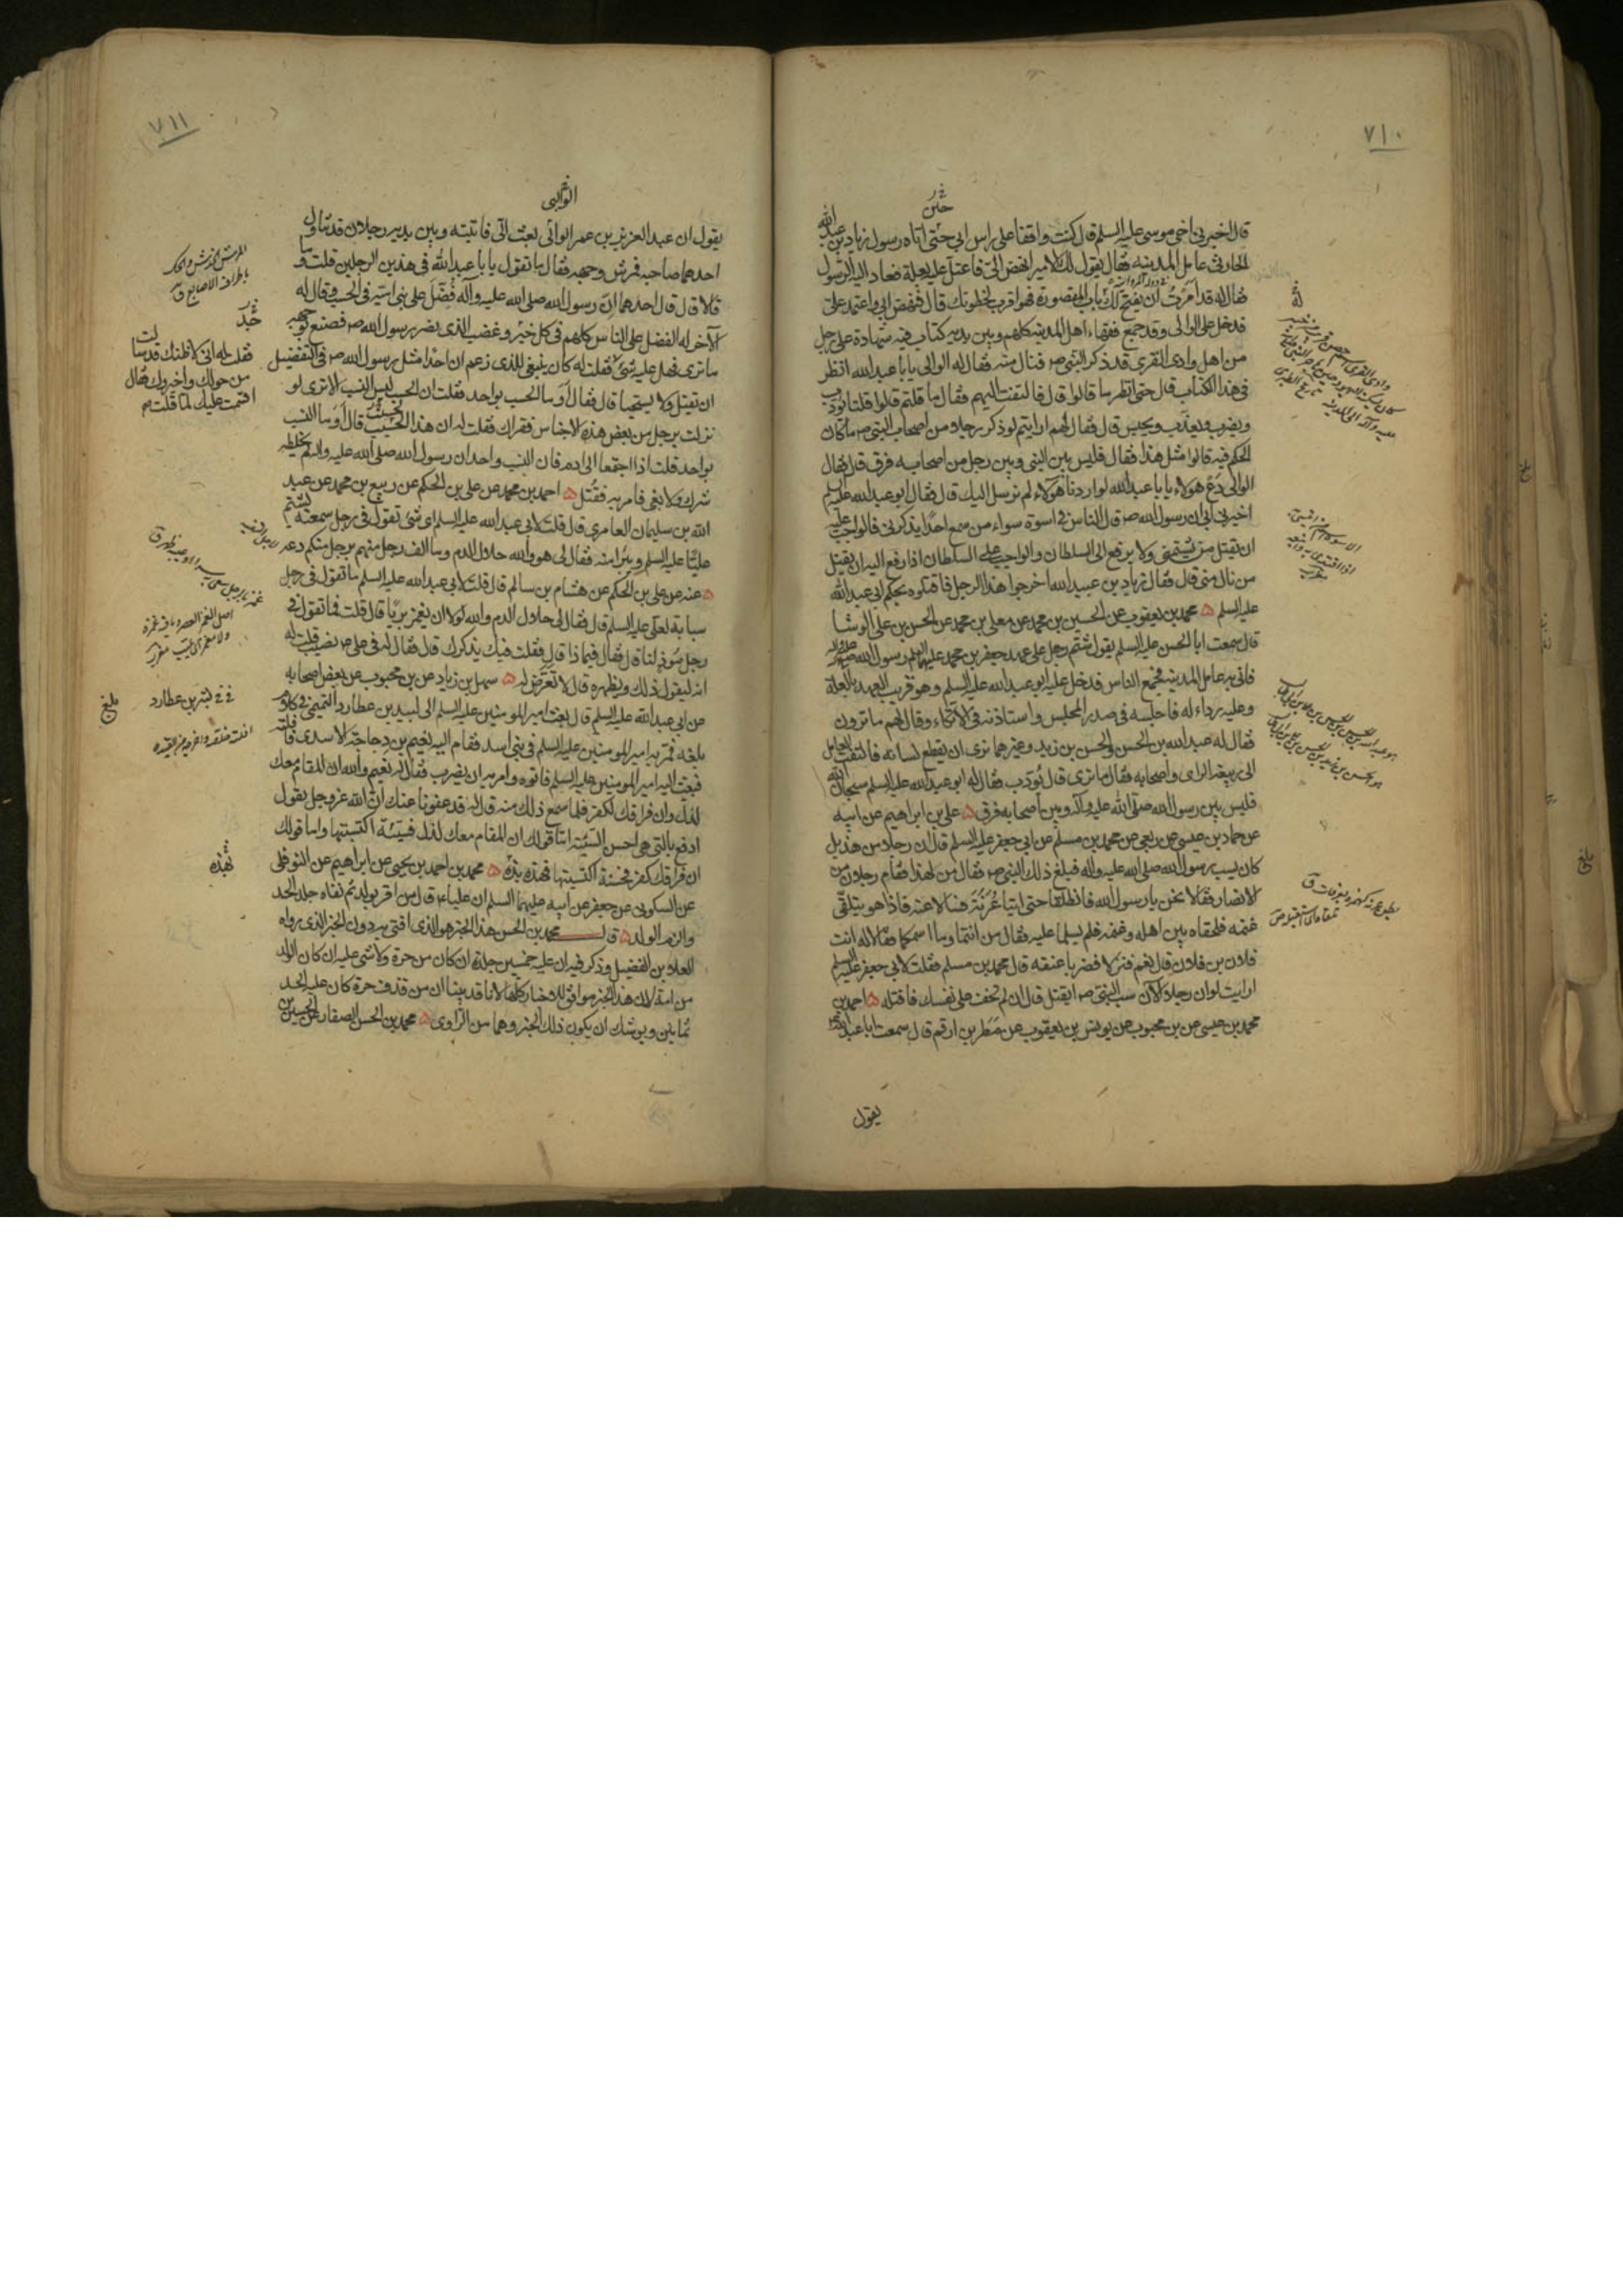 ٧١٠
قال اخبرني اخي موسى عليه السلم قال كنت واقفا على راس ابي حتى اتاه رسول زياد بن عبيد الله
الحارثي عامل المدينه فقال يقول لك الامير انهض الي فاعتل عليه بعلة فعاد اليه الرسول
فقال له قد امرت ان يفتح لك باب المقصورة فهو اقرب لخطوتك قال فنهض ابي واعتمد علي
فدخل على الوالي وقد جمع فقهاء اهل المدينه كلهم وبين يديه كتاب فيه شهادة على رجل
من اهل وادي القرى قد ذكر النبي ص فنال منه فقال له الوالي يابا عبد الله انظر
في هذا الكتاب قال حتى انظر ما قالوا قال فالتفت اليهم فقال ما قلتم قالوا قلنا يؤدب
ويضرب ويعذب ويحبس قال فقال لهم ارايتم لو ذكر رجلا من اصحاب النبي ص ما كان
الحكم فيه قالوا مثل هذا فقال فليس بين النبي وبين رجل من اصحابه فرق قال فقال
الوالي دع هولاء يابا عبد الله لو اردنا هولاء لم نرسل اليك قال فقال ابو عبد الله عليه السلم
اخبرني ابي ان رسول الله ص قال الناس في اسوة سواء من سمع احدا يذكرني فالواجب عليه
ان يقتل من شتمني ولا يرفع الى السلطان والواجب على السلطان اذا رفع اليه ان يقتل
من نال مني قال فقال زياد بن عبيد الله اخرجوا هذا الرجل فاقتلوه بحكم ابي عبد الله
عليه السلم ه محمد بن يعقوب عن الحسين بن محمد عن معلى بن محمد عن الحسن بن علي الوشا
قال سمعت ابا الحسن عليه السلم يقول شتم رجل على عهد جعفر بن محمد عليهما السلم رسول الله صلى الله عليه واله
فاتي به عامل المدينه فجمع الناس فدخل عليه ابو عبد الله عليه السلم وهو قريب العهد بالعلة
وعليه رداء له فاجلسه في صدر المجلس واستاذنه في الاتكاء وقال لهم ما ترون
فقال له عبد الله بن الحسن والحسن بن زيد وغيرهما نرى ان يقطع لسانه فالتفت العامل
الى ربيعة الراى واصحابه فقال ما ترى قال يؤدب فقال له ابو عبد الله عليه السلم سبحان الله
فليس بين رسول الله صلى الله عليه وآله وبين اصحابه فرق ه علي بن ابراهيم عن ابيه
عن حماد بن عيسى عن ربعي عن محمد بن مسلم عن ابي جعفر عليه السلم قال ان رجلا من هذيل
كان يسب رسول الله صلى الله عليه واله فبلغ ذلك النبي ص فقال من لهذا فقام رجلان من
الانصار فقالا نحن يا رسول الله فانطلقا حتى اتيا عرنة فسالا عنه فاذا هو يتلقى
غنمه فلحقاه بين اهله وغنمه فلم يسلما عليه فقال من انتما وما اسمكما فقالا له انت
فلان بن فلان قال نعم فنزلا فضربا عنقه قال محمد بن مسلم فقلت لابي جعفر عليه السلم
ارايت لو ان رجلا الآن سب النبي ص ايقتل قال ان لم تخف على نفسك فاقتله ه احمد بن
محمد بن عيسى عن بن محبوب عن يونس بن يعقوب عن مطر بن ارقم قال سمعت ابا عبد الله
يقول
بلغ
٧١١
الوالبى
يقول ان عبد العزيز بن عمر الوالي بعث الي فاتيته وبين يديه رجلان قد تناول
احدهما صاحبه فمرش وجهه فقال ما تقول يابا عبد الله في هذين الرجلين قلت وما
قالا قال قال احدهما ان رسول الله صلى الله عليه وآله فضل على بني امية في الحسب وقال له
الآخر له الفضل على الناس كلهم في كل خير وغضب الذي نصر رسول الله ص فصنع بوجهه
ما ترى فهل عليه شيء فقلت له كان ينبغي للذي زعم ان احدا مثل رسول الله ص في التفضيل
ان يقتل ولا يستحيا قال فقال او ما الحسب بواحد فقلت ان الحسب ليس النسب الا ترى لو
نزلت برجل من بعض هذه الاجناس فقراك فقلت له ان هذا الحسيب قال او ما النسب
بواحد قلت اذا اجتمعا الى ادم فان النسب واحد ان رسول الله صلى الله عليه واله لم يخلطه
شرك ولا بغي فامر به فقتل ه احمد بن محمد عن علي بن الحكم عن ربيع بن محمد عن عبد
الله بن سليمان العامري قال قلت لابي عبد الله عليه السلم اي شيء تقول في رجل سمعته يشتم
عليا عليه السلم ويبرا منه فقال لي هو والله حلال الدم وما الف رجل منهم برجل منكم دعه
ه عنه عن علي بن الحكم عن هشام بن سالم قال قلت لابي عبد الله عليه السلم ما تقول في رجل
سبابة لعلي عليه السلم قال فقال لي حلال الدم والله لولا ان يغمز بريا قال قلت فما تقول في
رجل موذ لنا قال فقال فيما ذا قال فقلت فيك يذكرك قال فقال له في علي ص نصيب قلت له
انه ليقول ذلك ويظهره قال لا تعرض له ه سهل بن زياد عن بن محبوب عن بعض اصحابه
عن ابي عبد الله عليه السلم قال بعث امير المومنين عليه السلم الى لبيد بن عطارد التميمي في كلام
بلغه فمر به امير المومنين عليه السلم في بني اسد فقام اليه نعيم بن دجاجة الاسدي فافلته
فبعث اليه امير المومنين عليه السلم فاتوه به وامر به ان يضرب فقال له نعيم والله ان المقام معك
لذل وان فراقك لكفر فلما سمع ذلك منه قال له قد عفونا عنك ان الله عز وجل يقول
ادفع بالتي هي احسن السيئة اما قولك ان المقام معك لذل فسيئة اكتسبتها واما قولك
ان فراقك كفر فحسنة اكتسبتها فهذه بذه ه محمد بن احمد بن يحيى عن ابراهيم عن النوفلي
عن السكوني عن جعفر عن ابيه عليهما السلم ان عليا ع قال من اقر بولد ثم نفاه جلد الحد
والزم الولد ه قال محمد بن الحسن هذا الخبر هو الذي افتي به دون الخبر الذي رواه
العلا بن الفضيل وذكر فيه ان عليه خمسين جلدة ان كان من حرة ولا شي عليه ان كان الولد
من امة لان هذا الخبر موافق للاخبار كلها لانا قد بينا ان من قذف حرة كان عليه الحد
ثمانين ويوشك ان يكون ذلك الخبر وهما من الراوي ه محمد بن الحسن الصفار عن الحسن بن
المرش الخدش والحك
باطراف الاصابع ق
فقلت له اني لا اظنك قد سالت
من حولك واخبروك فقال
اقسمت عليك لما قلت م
بلغ